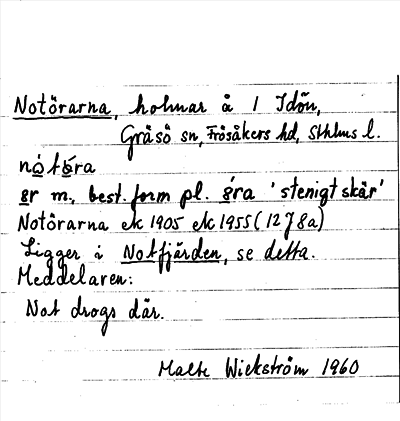 Notörarna, holmar å / Idön,
Gräsö sn, Frösåkers hd, Sthlms l.
nò̱tö́ra
ör m., best. form pl. öra 'stenigt skär'
Notörarna ek 1905 ek 1955 (12 J 8a)
Ligger i Notfjärden, se detta.
Meddelaren:
Not drogs där.
Malte Wickström 1960